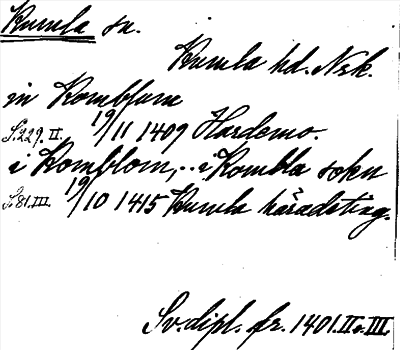 Kumla sn.
Kumla hd. Nrk.
in Komblum
S. 229. II. 19/11 1409 Hardemo.
i Komblom, .. i Kombla sokn
S. 81. III. 19/10 1415 Kumla häradsting.
Sv. dipl. fr. 1401. II o. III.